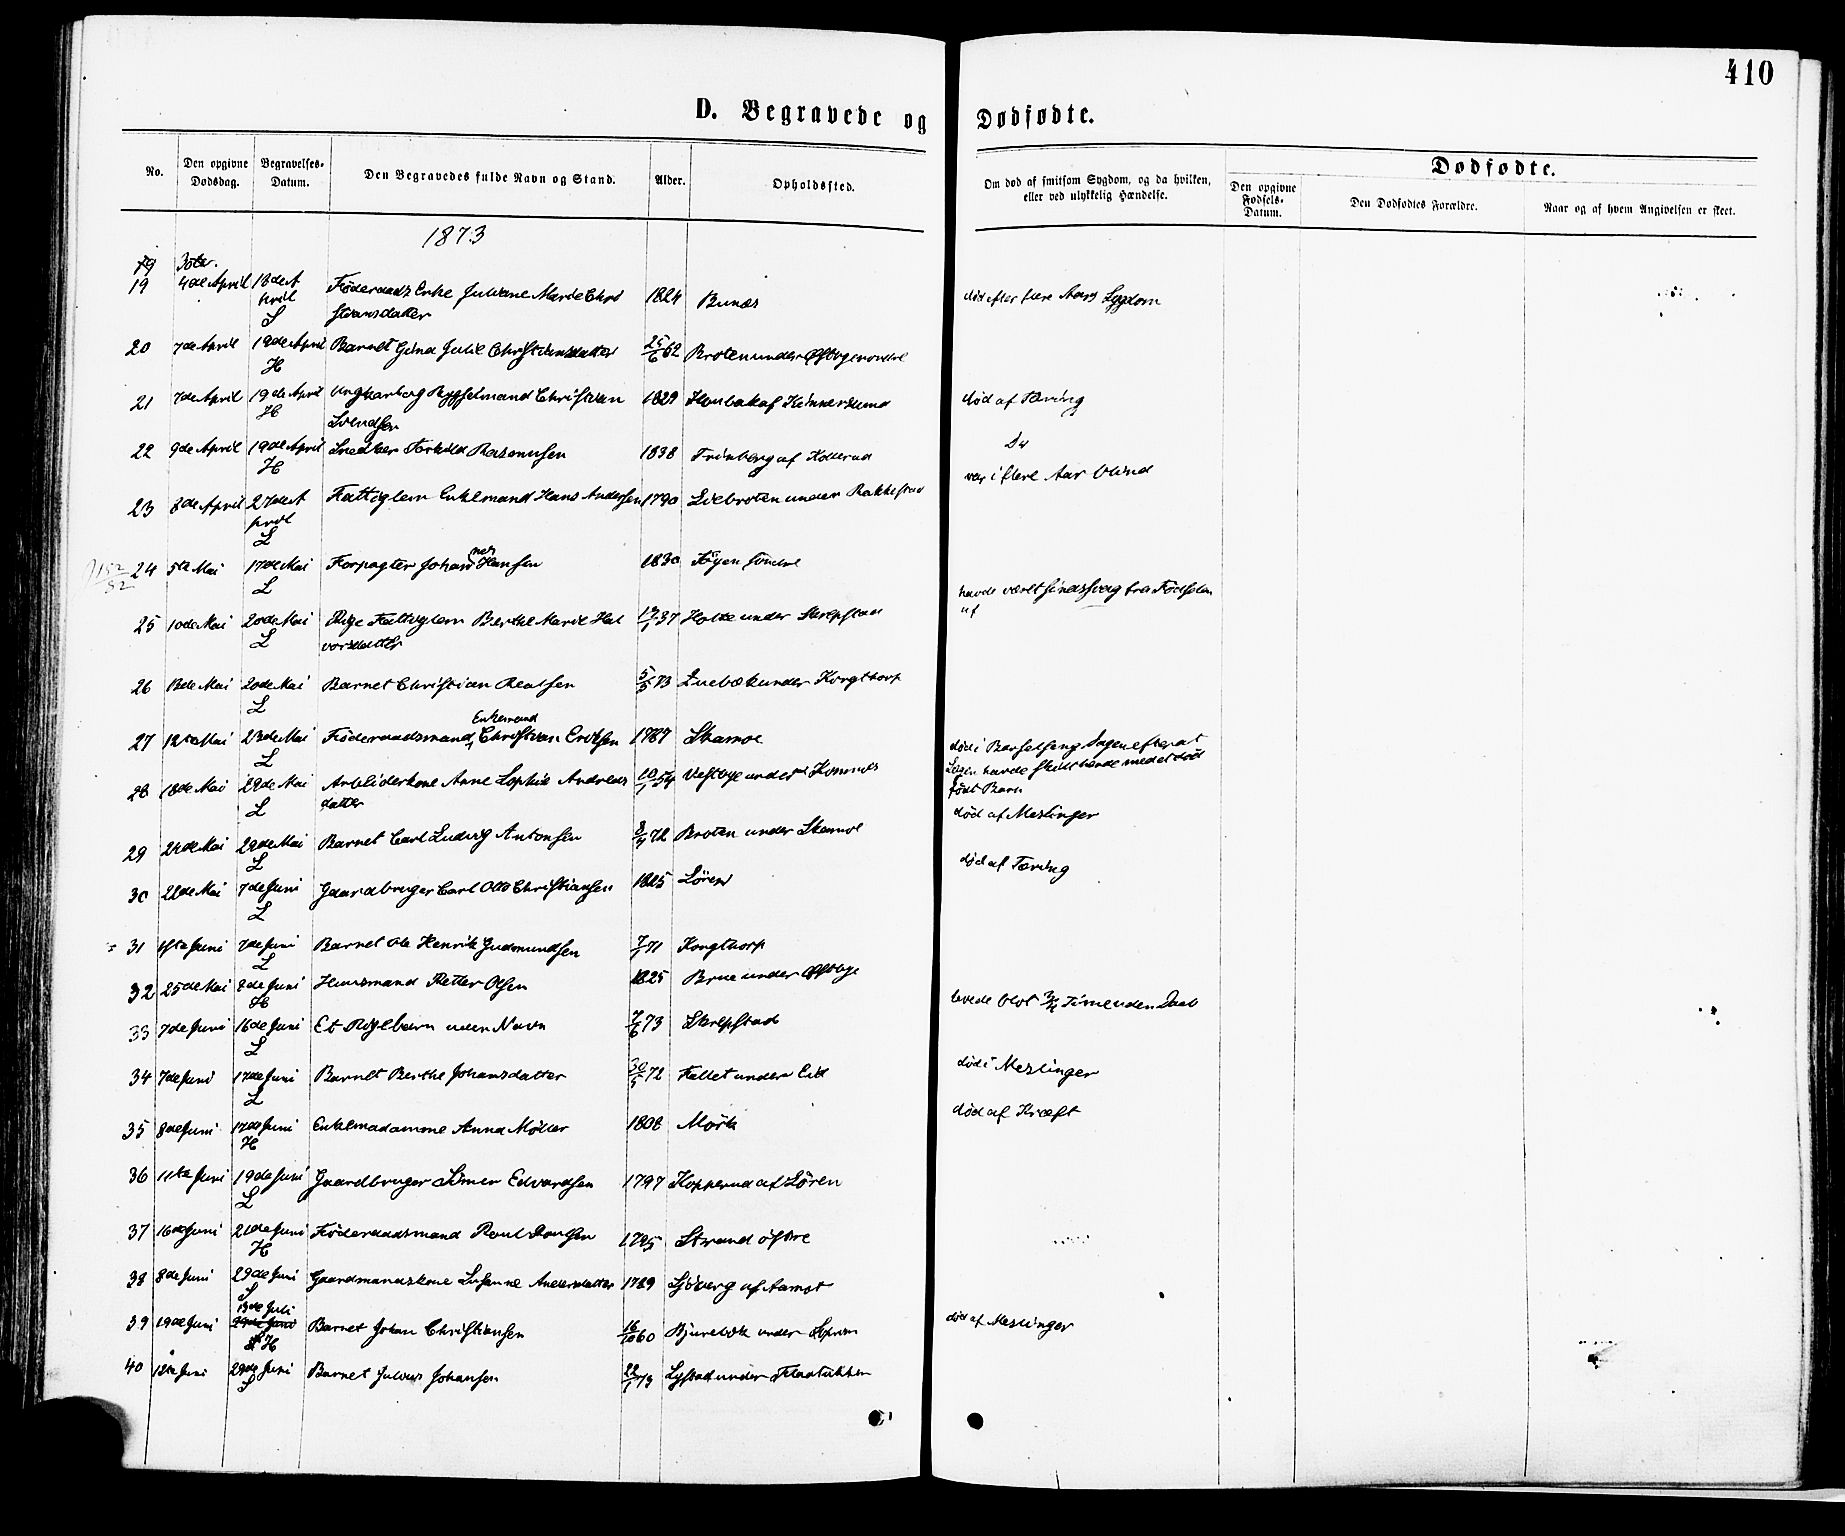 410
D. Begravede og Dødfødte.
No.
Den opgivne Dødsdag.
Begravelses-Datum.
Den Begravedes fulde Navn og Stand.
Alder.
Opholdssted.
Om død af smitsom Sygdom, og da hvilken, eller ved ulykkelig Hændelse.
Dødfødte.
Den opgivne Fødsels-Datum.
Den Dødfødtes Forældre.
Naar og af hvem Angivelsen er skeet.
1873
19 4de April 18de April L Føderaads Enke Juliane Marie Christiansdatter 1824 Bunæs død efter flere Aars Sygdom
20 7de April 19de April H Barnet Gina Julie Christiansdatter 25/6 62 Broten under
21 7de April 19de April H Ungkarl og Christian Svendsen 1829 af død af Tæring
22 9de April 19de April H Snedker Torkild Rasmussen 1838 af Kollerud Do
23 8de April 27de April L Fattiglem Enkemand Hans Andersen 1790 Liebroten under Rakkestad var i flere Aar blind
24 5te Mai 17de Mai L Forpagter Johannes Hansen 1830 Føyen søndre
25 10de Mai 20de Mai L Pige Fattiglem Berthe Marie Halvorsdatter 37 Holte under Skrepstad havde været sindssvag fra Fødselen af
26 13de Mai 20de Mai L Barnet Christian 5/5 73 under Kongthorp
27 12te Mai 23de Mai L Føderaadsmand, Enkemand Christian Eriksen 1787 Skamoe
28 18de Mai 29de Mai L Arbeiderkone Anne Sophie Andreasdatter 10/1 54 Vestbye under død i Barselseng Dagen efterat Lægen havde skildt hende med et død født Barn
29 24de Mai 29de Mai L Barnet Carl Ludvig Antonsen 72 Broten under Skamoe død af Meslinger
30 22de Mai 7de Juni L Gaardbruger Carl Otto Christiansen 1825 Løren død af Tæring
31 1ste Juni 7de Juni L Barnet Ole Henrik Gudmundsen 71 Kongthorp
32 25de Mai 8de Juni H Huusmand Petter Olsen 1825 under Østbye
33 7de Juni 16de Juni L Et Pigebarn uden Navn 7/6 73 Skrepstad levede blot 3/4 Time uden Daab
34 7de Juni 17de Juni L Barnet Berthe Johansdatter 30/5 72 Fallet under Eid død i Meslinger
35 8de Juni 17de Juni H Enkemadamme Anna Møller 1808 Mørk død af Kræft
36 11te Juni 19de Juni L Gaardbruger Simen Edvardsen 1797 Kopperud af Løren
37 16de Juni 21de Juni H Føderaadsmand Poul 1795 Strand østre
38 8de Juni 29de Juni L Gaardmandskone Susanne Andersdatter 1789 Sjøberg af Aamot
39 19de Juni 13de Juli H Barnet Johan Christiansen 16/10 60 Bjurebæk under død af Meslinger
40 12te Juni 29de Juni L Barnet Julius Johansen 22/1 73 Lystad under